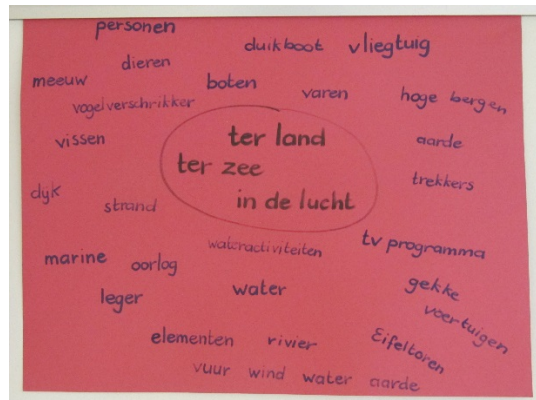 personen
duikboot
vliegtuig
dieren
meeuw
boten
varen
hoge bergen
vogelverschrikker
vissen
ter land
ter zee
in de lucht
aarde
trekkers
dijk
strand
wateractiviteiten
tv programma
marine
oorlog
leger
water
gekke
voertuigen
elementen
rivier
Eifeltoren
vuur wind water aarde